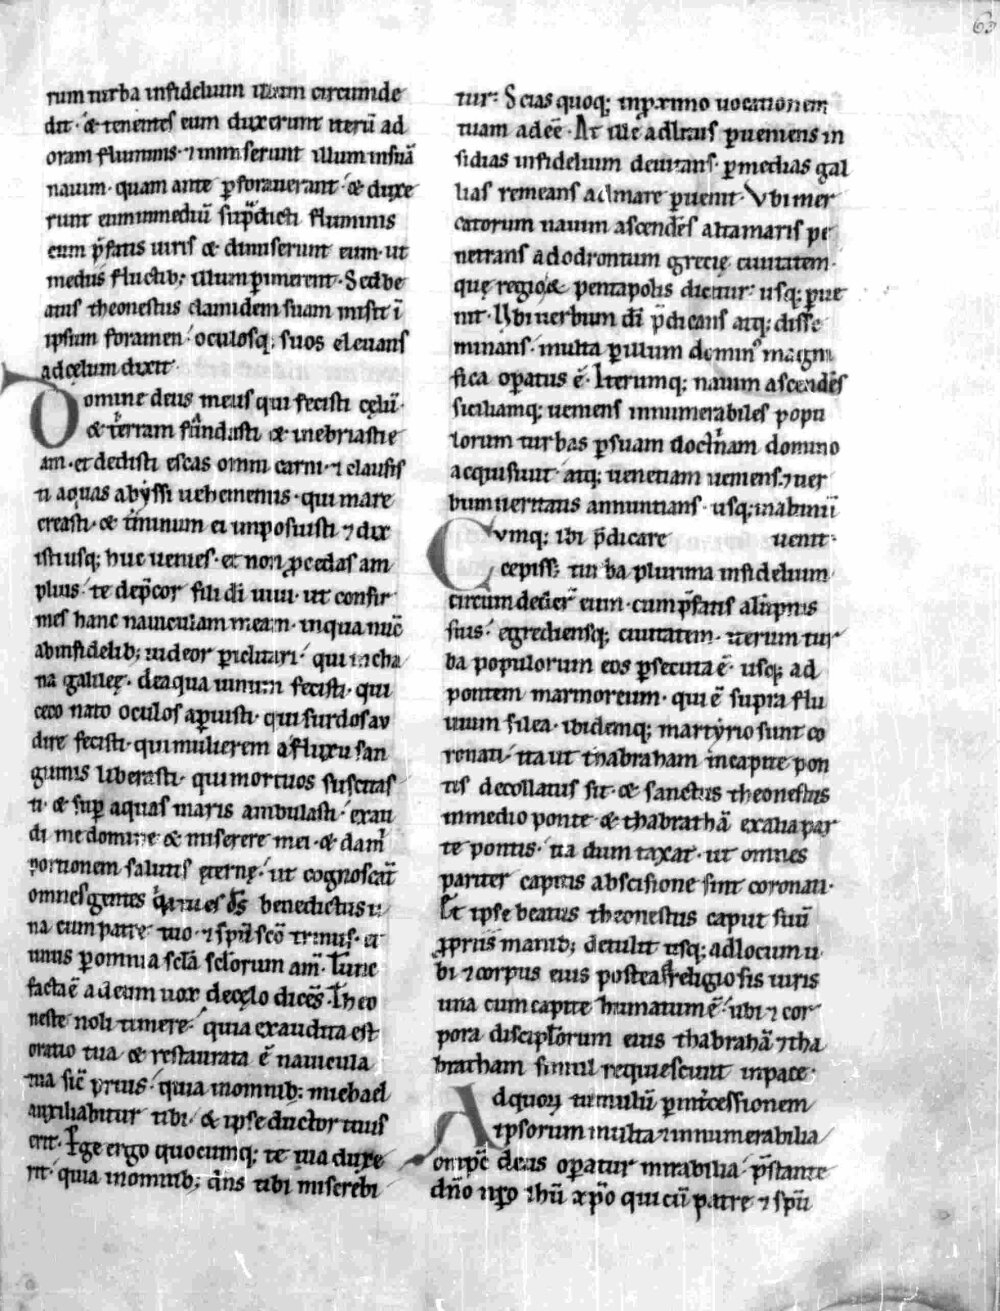 63
rum turba infidelium illum circumde
dit· & tenentes eum duxerunt iterū ad
oram fluminis· ⁊ inmiserunt illum insuā
nauim· quam ante ꝑforauerant· & duxe
runt eum inmediū sup̄dicti fluminis
cum p̄fatis uiris & dimiserunt eum· ut
medius fluctib; illum ꝑimerent· Sed be
atus theonestus clamidem suam misit ī
ipsum foramen· oculosq; suos eleuans
ad cęlum dixit·
Domine deus meus qui fecisti cęlū·
& terram fundasti & inebriasti e
am· et dedisti escas omni carni· ⁊ clausis
ti aquas abyssi uehementis· qui mare
creasti· & t̄minum ei imposuisti ⁊ dix
isti usq; huc uenies· et non ꝓcedas am
plius· te dep̄cor fili dī uiui· ut confir
mes hanc nauiculam meam· inqua nūc
abinfidelib; uideor ꝑiclitari· qui incha
na galileę· deaqua uinum fecisti· qui
ceco nato oculos aꝑuisti· qui surdos au
dire fecisti· qui mulierem afluxu san
guinis liberasti· qui mortuos suscitas
ti· & suꝑ aquas maris ambulasti· exau
di me domine & miserere mei· & da m̄
portionem salutis ęternę· ut cognoscat̄
omnes gentes quia tu es d̄s benedictus u
na cum patre tuo· ⁊ sp̄u sc̄o trinus· et
unus ꝑ omnia sc̄la sc̄lorum am̄· Tunc
facta ē adeum uox decęlo dicēs· Theo
neste noli timere· quia exaudita est
oratio tua & restaurata ē nauicula
tua sic̄ prius· quia inomnib; michael
auxiliabitur tibi· & ipse ductor tuus
erit· Ego ergo quocumq; te uia duxe
rit· quia inomnib; dn̄s tibi miserebi
tur· Scias quoq; inproximo uocationem
tuam adeē· At ille adltaus ꝑueniens in
sidias infidelium deuitans· ꝑmedias gal
lias remeans ad mare ꝑuenit· Vbi mer
catorum nauim ascendēs altamaris pe
netrans adodrontum grecię ciuitatem·
quę regio & pentapolis dicitur· usq; ꝑue
nit· Vbi uerbum dī p̄dicans atq; disse
minans· multa ꝑ illum dominus magni
fica oꝑatus ē· Iterumq; nauim ascendēs
siciliamq; ueniens innumerabiles popu
lorum turbas ꝑsuam doct̄nam domino
acquisiuit· atq; uenetiam ueniens· ⁊ uer
bum ueritatis annuntians· usq; inaltinū
Cumq; ibi p̄dicare uenit·
cepiss; tur ba plurima infidelium·
circumdeder̄ eum· cum p̄fatis alūpnis
suis· egrediensq; ciuitatem· iterum tur
ba populorum eos ꝑsecuta ē· usq; ad
pontem marmoreum· qui ē supra flu
uium silea· ibidemq; martyrio sunt co
ronati· ita ut thabraham incapite pon
tis decollatus sit· & sanctus theonestus
inmedio ponte & thabrathā exalia par
te pontis· ita dum taxat· ut omnes
pariter capitis abscisione sint coronati·
Et ipse beatus theonestus caput suū
ꝓpriis manib; detulit usq; adlocum u
bi ⁊ corpus eius postea religiosis uiris
una cum capite humatum ē· ubi ⁊ cor
pora discipulorum eius thabrahā ⁊ tha
bratham simul requiescunt inpace·
Ad quoꝝ tumulū ꝑ int̄cessionem
ipsorum multa ⁊ innumerabilia
omp̄c deus oꝑatur mirabilia· p̄stante
dn̄o nr̄o ihū xp̄o qui cū patre ⁊ sp̄u